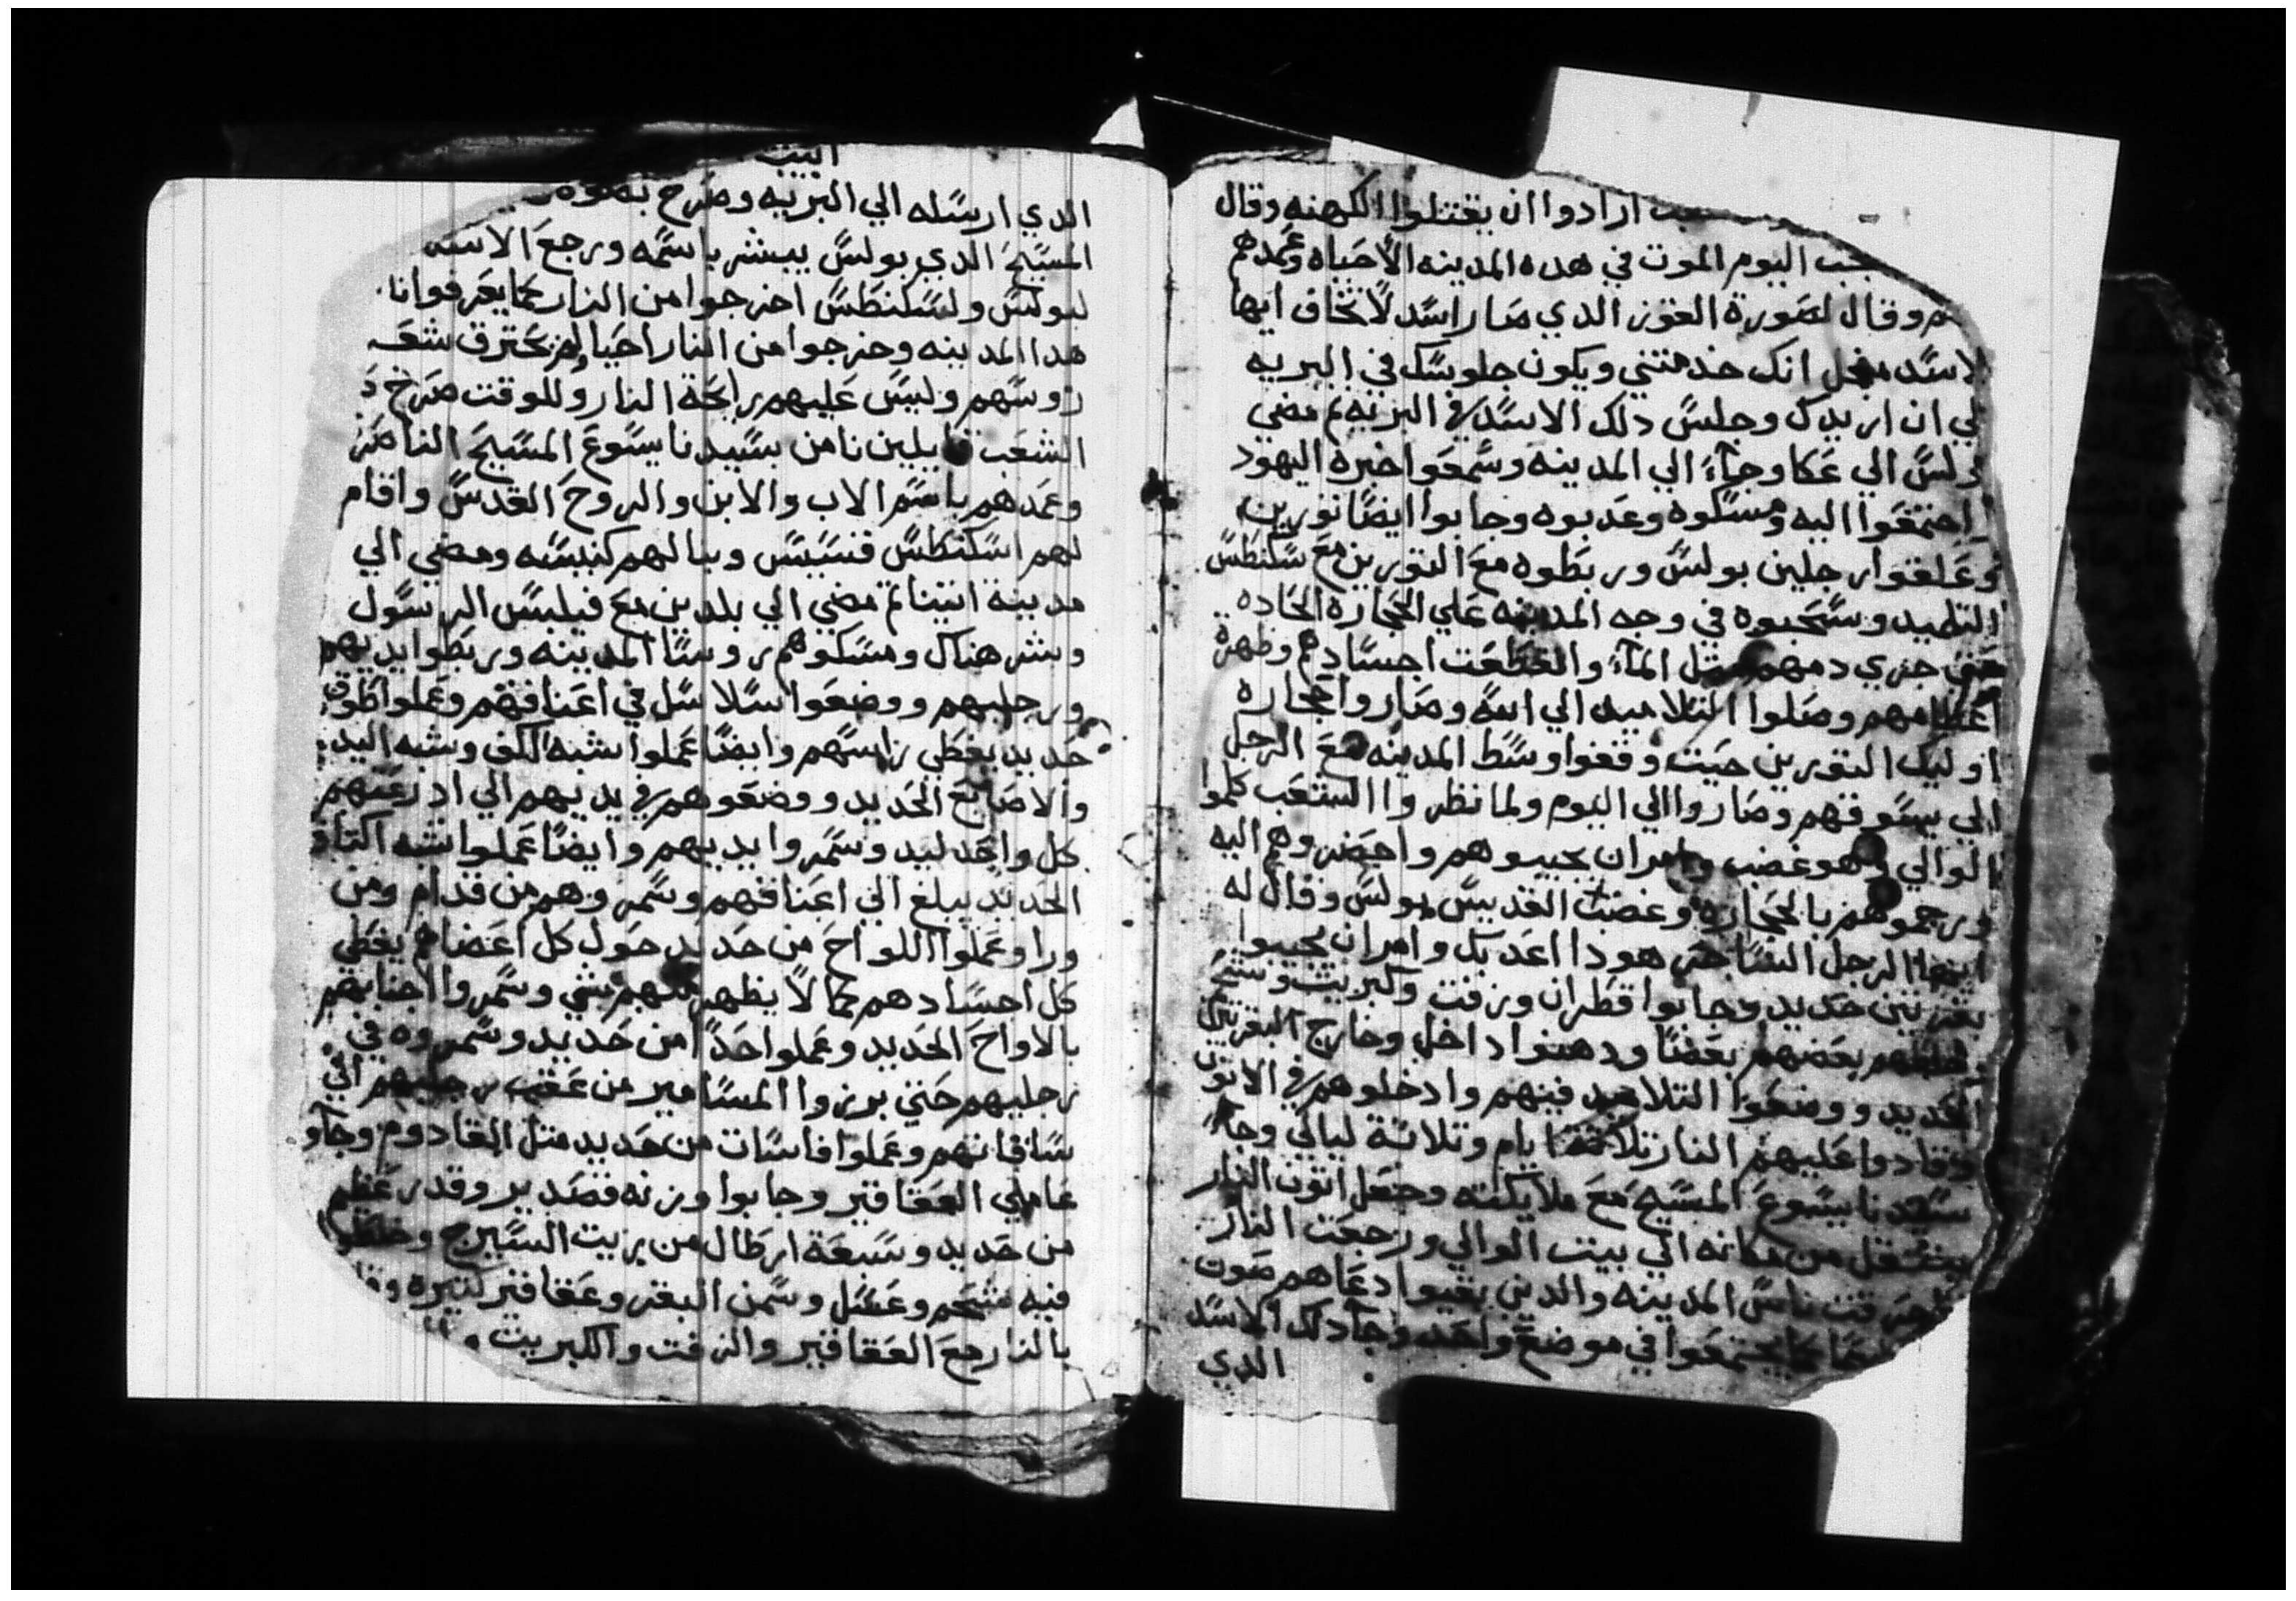 ارادوا ان يقتلوا الكهنه وقال
اليوم الموت في هده المدينه الا حياه وعمدهم
وقال لصورة العوز الدي صار اسد لا تخاف ايها
الاسد انك خدمتني ويكون جلوسك في البريه
لي ان اريدك وجلس دلك الاسد في البريه تم مضي
بولس الي عكا وجاء الي المدينه وسمعوا خبره اليهود
اجتمعوا اليه ومسكوه وعدبوه وجابوا ايضا تورين
وعلقوا رجلين بولس وربطوه مع التورين مع سكنطس
التلميد وسحبوه في وجه المدينه علي الحجاره الحاده
جري دمهم متل الماء وانقطعت اجسادهم وظهرة
عظامهم وصلوا التلاميد الي الله وصاروا حجاره
اوليك التورين حيت وقفوا وسط المدينه مع الرجل
الي يسوقهم وصاروا الي اليوم ولما نظروا الشعب كلموا
الوالي وهو غضب وامر ان يجيبوهم واحضروهم اليه
ورجموهم بالحجاره وغضب القديس بولس وقال له
ايها الرجل الساحر هودا اعدبك وامر ان يجيبوا
بقرتين حديد وجابوا قطران وزفت وكبريت وشحم
بعضهم بعضا ودهنوا داخل وخارج البقرتين
الحديد ووضعوا التلاميد فيهم وادخلوهم في الاتون
وقادوا عليهم النار تلاتة ايام وتلاتة ليالي وجاء
سيدنا يسوع المسيح مع ملايكته وجعل اتون النار
ينتقل من مكانه الي بيت الوالي ورجعت النار
احرقت ناس المدينه والدين بقيوا دعاهم صوت
كما يجتمعوا في موضع واحد وجا دلك الاسد
الدي
البيت
الدي ارسله الي البريه وصرخ بصوته
المسيح الدي بولس يبشر باسمه ورجع الاسد
لبولس ولسكنطس اخرجوا من النار كما يعرفوا نا
هدا المدينه وخرجوا من النار احيا ولم يحترق شعر
روسهم وليس عليهم رايحة النار وللوقت صرخ
الشعب قايلين نامن بسيدنا يسوع المسيح الناصر
وعمدهم باسم الاب والابن والروح القدس واقام
لهم اسكنطس قسيس وبنا لهم كنيسه ومضي الي
مدينة اتينا تم مضي الي بلدين مع فيلبس الرسول
وبشر هناك ومسكوهم روسا المدينه وربطوا يديهم
ورجليهم ووضعوا سلاسل في اعناقهم وعملوا طوق
حديد يغطي راسهم وايضا عملوا شبه الكف وشبه اليد
والاصابع الحديد ووضعوهم في يديهم الي ادرعتهم
كل واحد ليد وسمروا يديهم وايضا عملوا شبه اكتاف
الحديد يبلغ الي اعناقهم وسمروهم من قدام ومن
ورا وعملوا اللواح من حديد حول كل اعضاهم يغطي
كل اجسادهم كما لا يظهر منهم شي وسمروا اجنابهم
بالاواح الحديد وعملوا حدا من حديد وسمروه في
رجليهم حتي برزوا المسامير من عقب رجليهم الي
ساقاتهم وعملوا فاسات من حديد متل القادوم وجاو
عاملي العقاقير وجابوا وزنه قصدير وقدر عظيم
من حديد وسبعة ارطال من زيت السيرج وخلطوا
فيه شحم وعسل وسمن البقر وعقاقير كتيره
بالنار مع العقاقير والزفت والكبريت